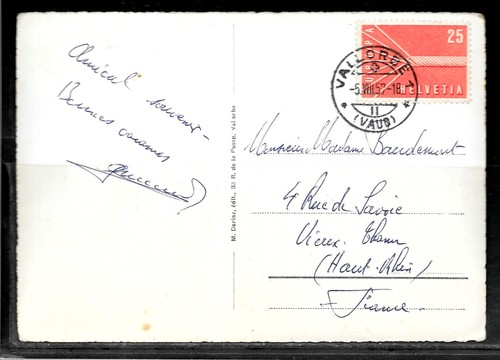 Amical souvenir -
Bonnes vacances
M. Deriaz, édit., 20 R. de la Poste, Vallorbe
EUROPA
25
HELVETIA
VALLORBE 1
-5.VIII.57-18
II
(VAUD)
Monsieur Madame Baudemont
4 Rue de Savoie
Vieux-Thann
(Haut-Rhin)
France